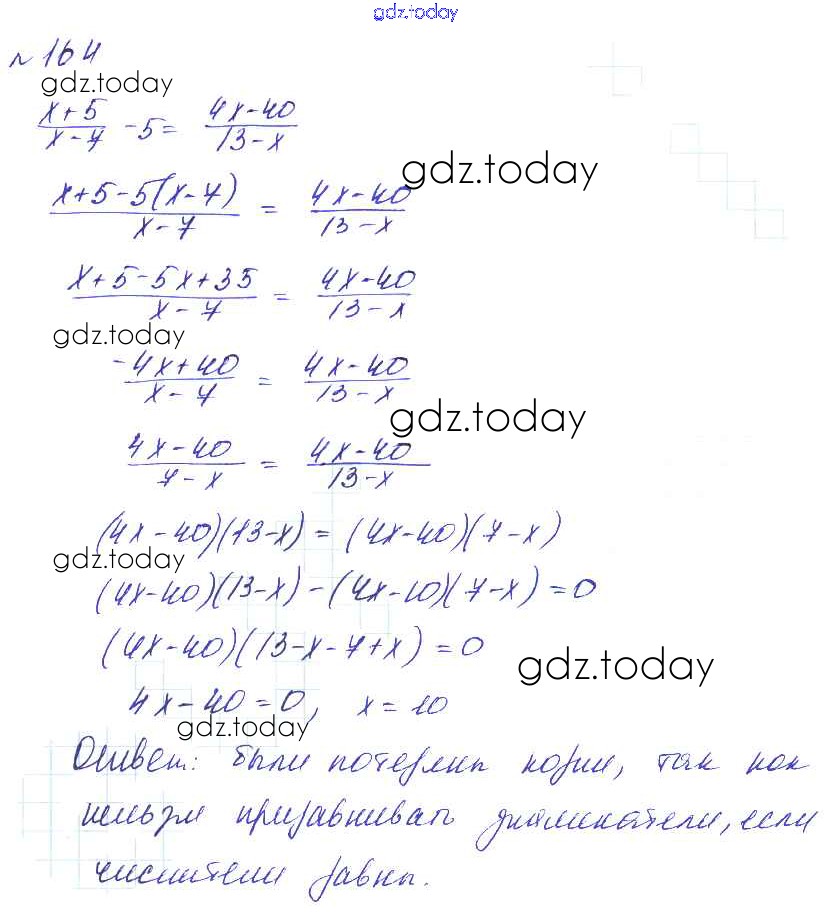 gdz.today
№ 164
gdz.today
(x+5)/(x-7) - 5 = (4x-40)/(13-x)
gdz.today
(x+5-5(x-7))/(x-7) = (4x-40)/(13-x)
(x+5-5x+35)/(x-7) = (4x-40)/(13-x)
gdz.today
(-4x+40)/(x-7) = (4x-40)/(13-x)
gdz.today
(4x-40)/(7-x) = (4x-40)/(13-x)
(4x-40)(13-x) = (4x-40)(7-x)
gdz.today
(4x-40)(13-x) - (4x-10)(7-x) = 0
(4x-40)(13-x-7+x) = 0
gdz.today
4x-40=0, x=10
gdz.today
Ответ: были потеряны корни, так как
нельзя приравнивать знаменатели, если
числители равны.